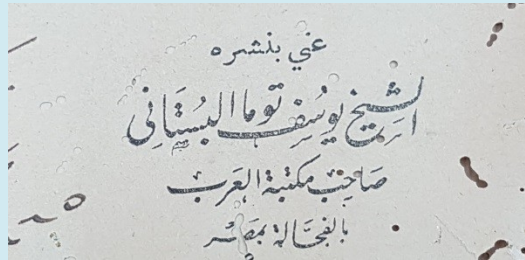 عني بنشره
الشيخ يوسف توما البستاني
صاحب مكتبة العرب
بالفجالة بمصر